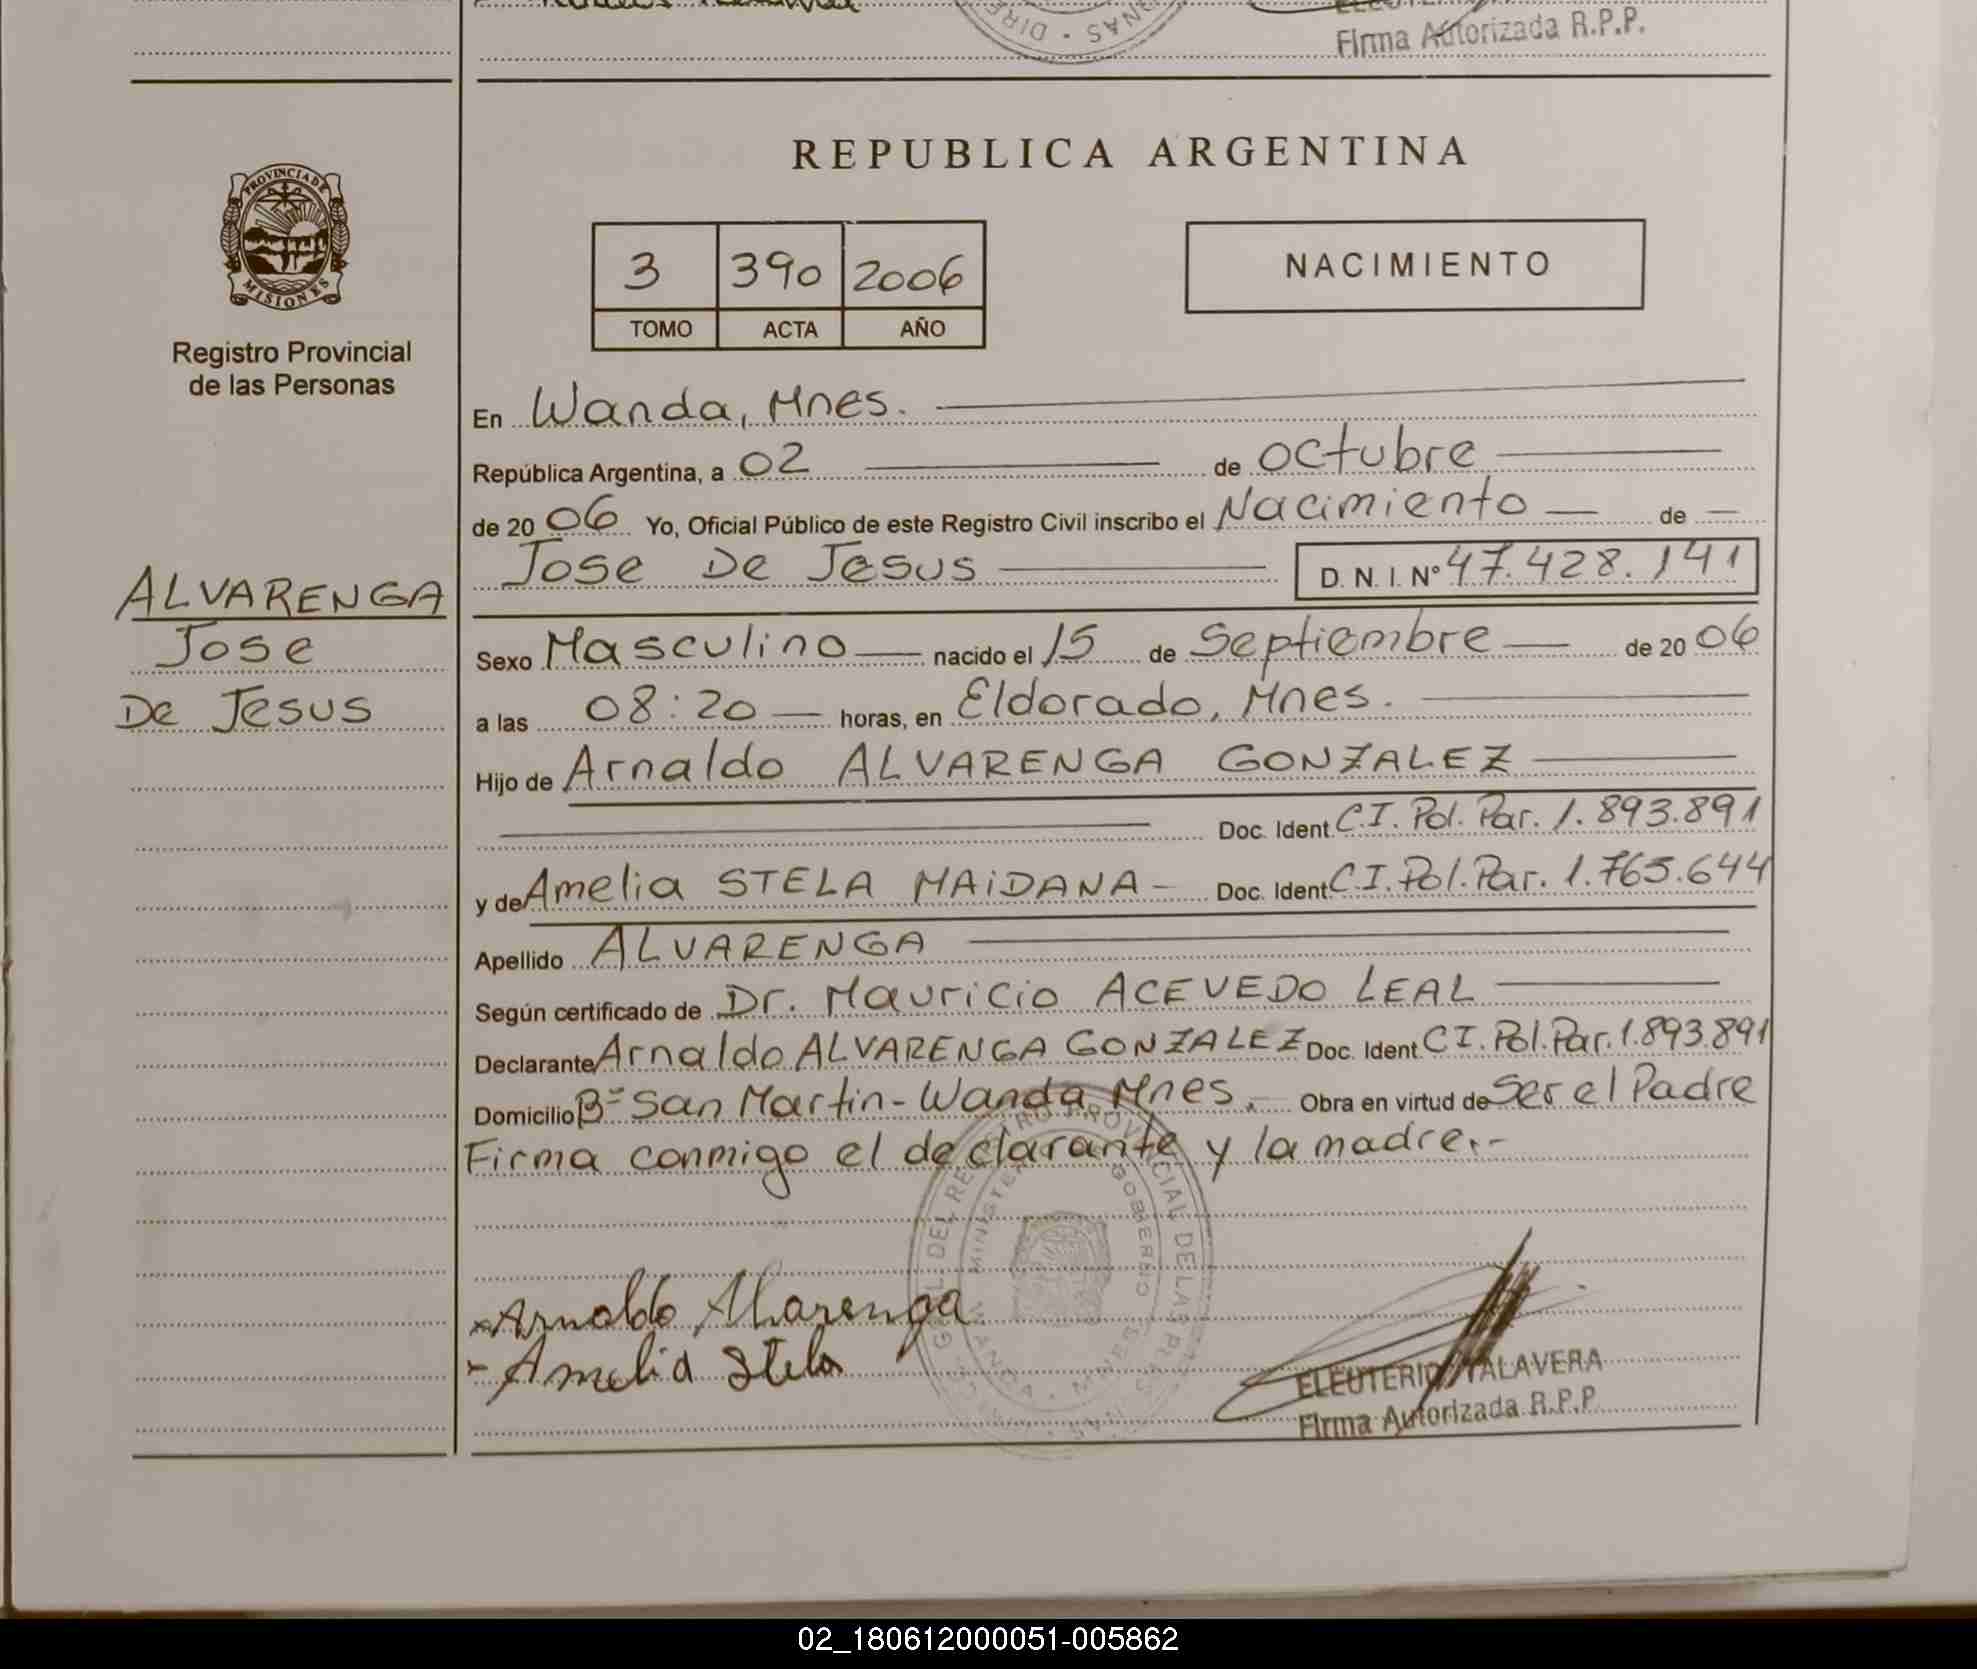 Firma Autorizada R.P.P.
REPUBLICA ARGENTINA
PROVINCIA DE
MISIONES
Registro Provincial
de las Personas
3 390 2006
TOMO ACTA AÑO
NACIMIENTO
En Wanda, Mnes.
República Argentina, a 02 de octubre
de 20 06 Yo, Oficial Público de este Registro Civil inscribo el Nacimiento de
Jose De Jesus D. N. I. Nº 47.428.141
ALVARENGA
Jose
De Jesus
Sexo Masculino nacido el 15 de Septiembre de 20 06
a las 08:20 horas, en Eldorado, Mnes.
Hijo de Arnaldo ALVARENGA GONZALEZ
Doc. Ident. C.I. Pol. Par. 1.893.891
y de Amelia STELA MAIDANA Doc. Ident. C.I. Pol. Par. 1.765.644
Apellido ALVARENGA
Según certificado de Dr. Mauricio ACEVEDO LEAL
Declarante Arnaldo ALVARENGA GONZALEZ Doc. Ident. CI. Pol. Par. 1.893.891
Domicilio Bº San Martin - Wanda Mnes. Obra en virtud de Ser el Padre
Firma conmigo el declarante y la madre.-
Arnaldo Alvarenga
Amelia Stela
ELEUTERIO TALAVERA
Firma Autorizada R.P.P.
02_180612000051-005862